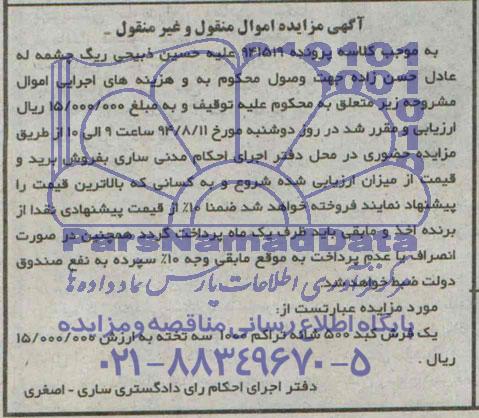 آگهی مزایده اموال منقول و غیر منقول
به موجب کلاسه پرونده 941519 علیه حسین ذبیحی ریگ چشمه له
عادل حسن زاده جهت وصول محکوم به و هزینه های اجرایی اموال
مشروحه زیر متعلق به محکوم علیه توقیف و به مبلغ 15/000/000 ریال
ارزیابی و مقرر شد در روز دوشنبه مورخ 94/8/11 ساعت 9 الی 10 از طریق
مزایده حضوری در محل دفتر اجرای احکام مدنی ساری بفروش برید و
قیمت از میزان ارزیابی شده شروع و به کسانی که بالاترین قیمت را
پیشنهاد نمایند فروخته خواهد شد ضمنا 10% از قیمت پیشنهادی نقدا از
برنده اخذ و مابقی باید ظرف یک ماه پرداخت گردد همچنین در صورت
انصراف یا عدم پرداخت به موقع مابقی وجه 10% سپرده به نفع صندوق
دولت ضبط خواهد شد
مورد مزایده عبارتست از:
یک فرش گبد 500 شانه تراکم 1000 سه تخته به ارزش 15/000/000
ریال .
دفتر اجرای احکام رای دادگستری ساری - اصغری
ParsNamadData
مرکز فرآوری اطلاعات پارس نماد داده ها
پایگاه اطلاع رسانی مناقصه و مزایده
۰۲۱-۸۸۳۴۹۶۷۰-۵